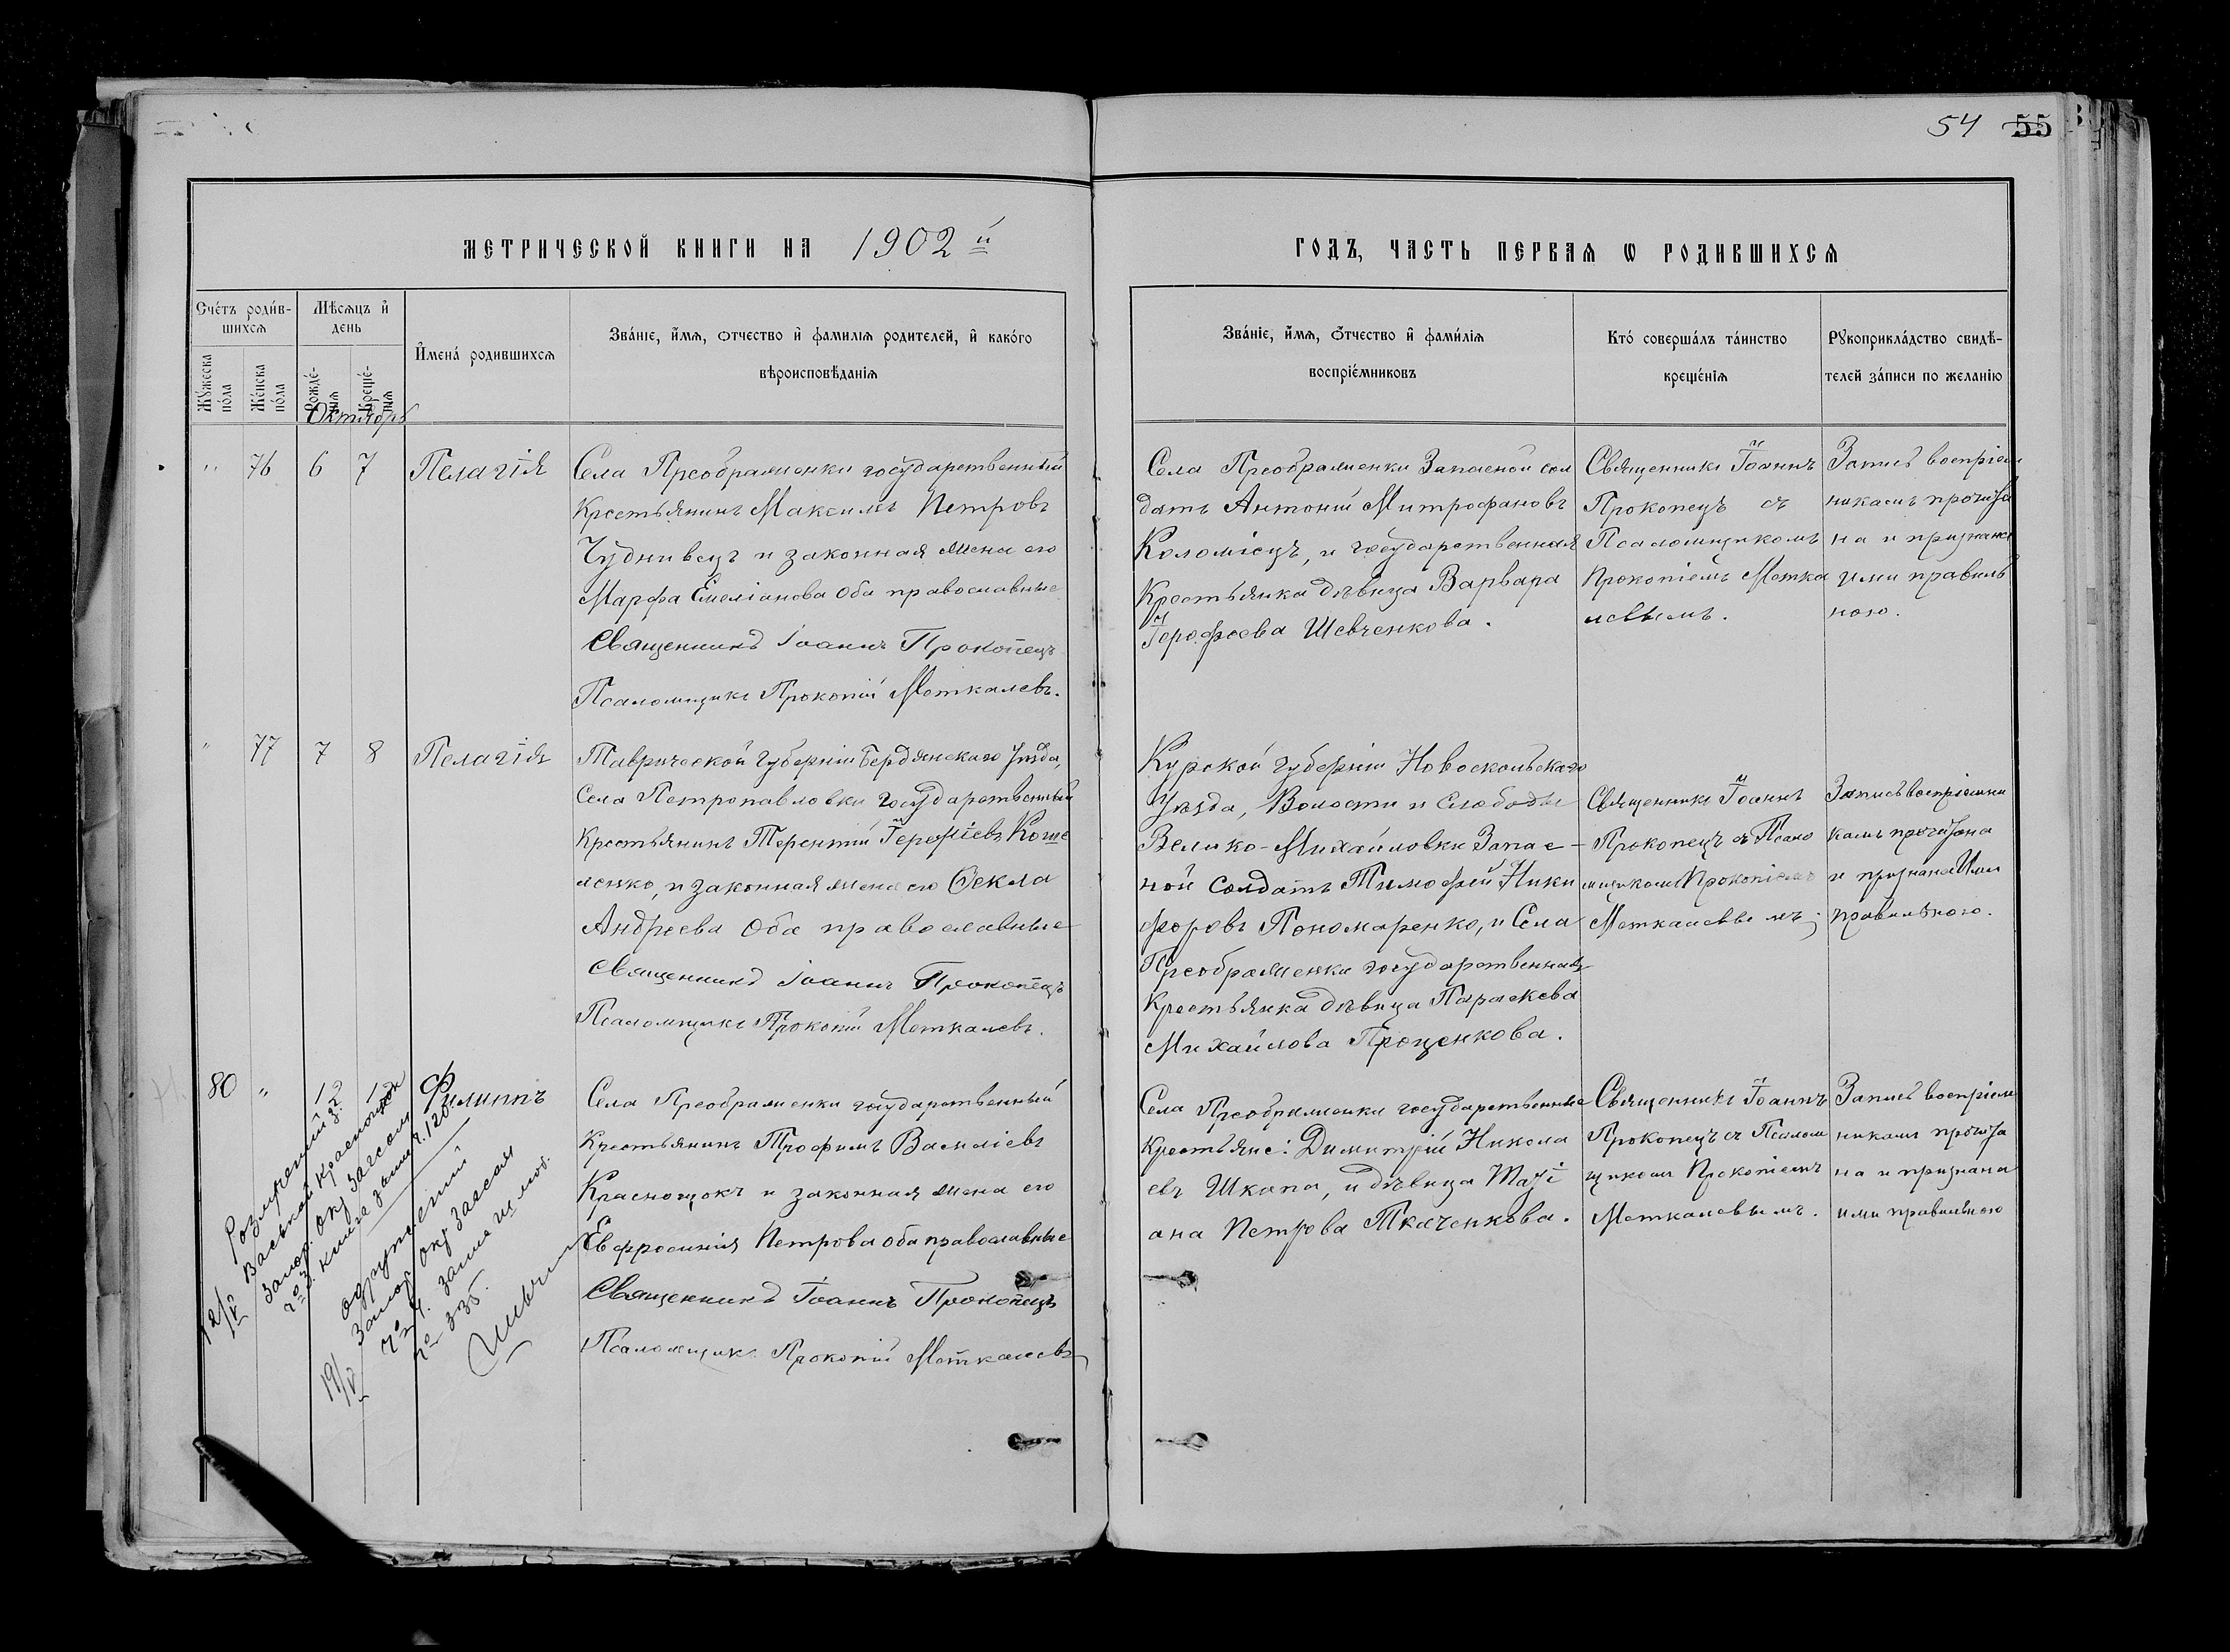 54 55
МЕТРИЧЕСКОЙ КНИГИ НА 1902 й
ГОДЪ, ЧАСТЬ ПЕРВАЯ Ѡ РОДИВШИХСЯ
Счетъ родив-
шихся
Мѣсяцъ и
день
Мꙋжеска
пола
Женска
пола
Рожде-
нія
Креще-
нія
Имена родившихся
Званіе, имя, отчество и фамилія родителей, и какого
вѣроисповѣданія
Званіе, имя, отчество и фамилія
воспріемниковъ
Кто совершалъ таинство
крещенія
Рꙋкоприкладство свидѣ-
телей записи по желанію
Октябрь
" 76 6 7 Пелагія
Села Преображенки государственный
Крестьянинъ Максимъ Петровъ
Чуднивецъ и законная жена его
Марфа Емеліанова оба православные
Священникъ Іоаннъ Прокопецъ
Псаломщикъ Прокопій Меткалевъ.
Села Преображенки Запасной сол
датъ Антоній Митрофановъ
Коломіецъ, и государственная
Крестьянка дѣвица Варвара
Іерофеева Шевченкова.
Священникъ Іоаннъ
Прокопецъ съ
Псаломщикомъ
Прокопіемъ Метка
левымъ.
Запись воспріем
никамъ прочита
на и признана
ими правиль
ною.
" 77 7 8 Пелагія
Таврической губерніи Бердянскаго Уѣзда,
Села Петропавловки государственный
Крестьянинъ Терентій Іереміевъ Коше
ленко, и законная жена его Ѳекла
Андреева оба православные
Священникъ Іоаннъ Прокопецъ
Псаломщикъ Прокопій Меткалевъ.
Курской губерніи Новоскольскаго
Уѣзда, Волости и Слободы
Велико-Михайловки Запас-
ной солдатъ Тимофей Ники
форовъ Пономаренко, и Села
Преображенки государственная
Крестьянка дѣвица Параскева
Михайлова Проценкова.
Священникъ Іоаннъ
Прокопецъ съ Псало
мщикомъ Прокопіемъ
Меткалевымъ.
Запись воспріемни
камъ прочитана
и признана Ими
правильною.
80 " 12 13 Филиппъ
Села Преображенки государственный
Крестьянинъ Трофимъ Василіевъ
Краснощокъ и законная жена его
Евфросинія Петрова оба православные
Священникъ Іоаннъ Прокопецъ
Псаломщикъ Прокопій Меткалевъ
Села Преображенки государственные
Крестьяне: Димитрій Никола
евъ Шкапа, и дѣвица Таті
ана Петрова Ткаченкова.
Священникъ Іоаннъ
Прокопецъ съ Псалом
щикомъ Прокопіемъ
Меткалевымъ.
Запись воспріем
никамъ прочита
на и признана
ими правильною
12/V Розлучений з
Васькой
Запор. окр Загсом
книга запис ч. 120
19/V одружений
Запор окр Загсом
запис
№ 335.